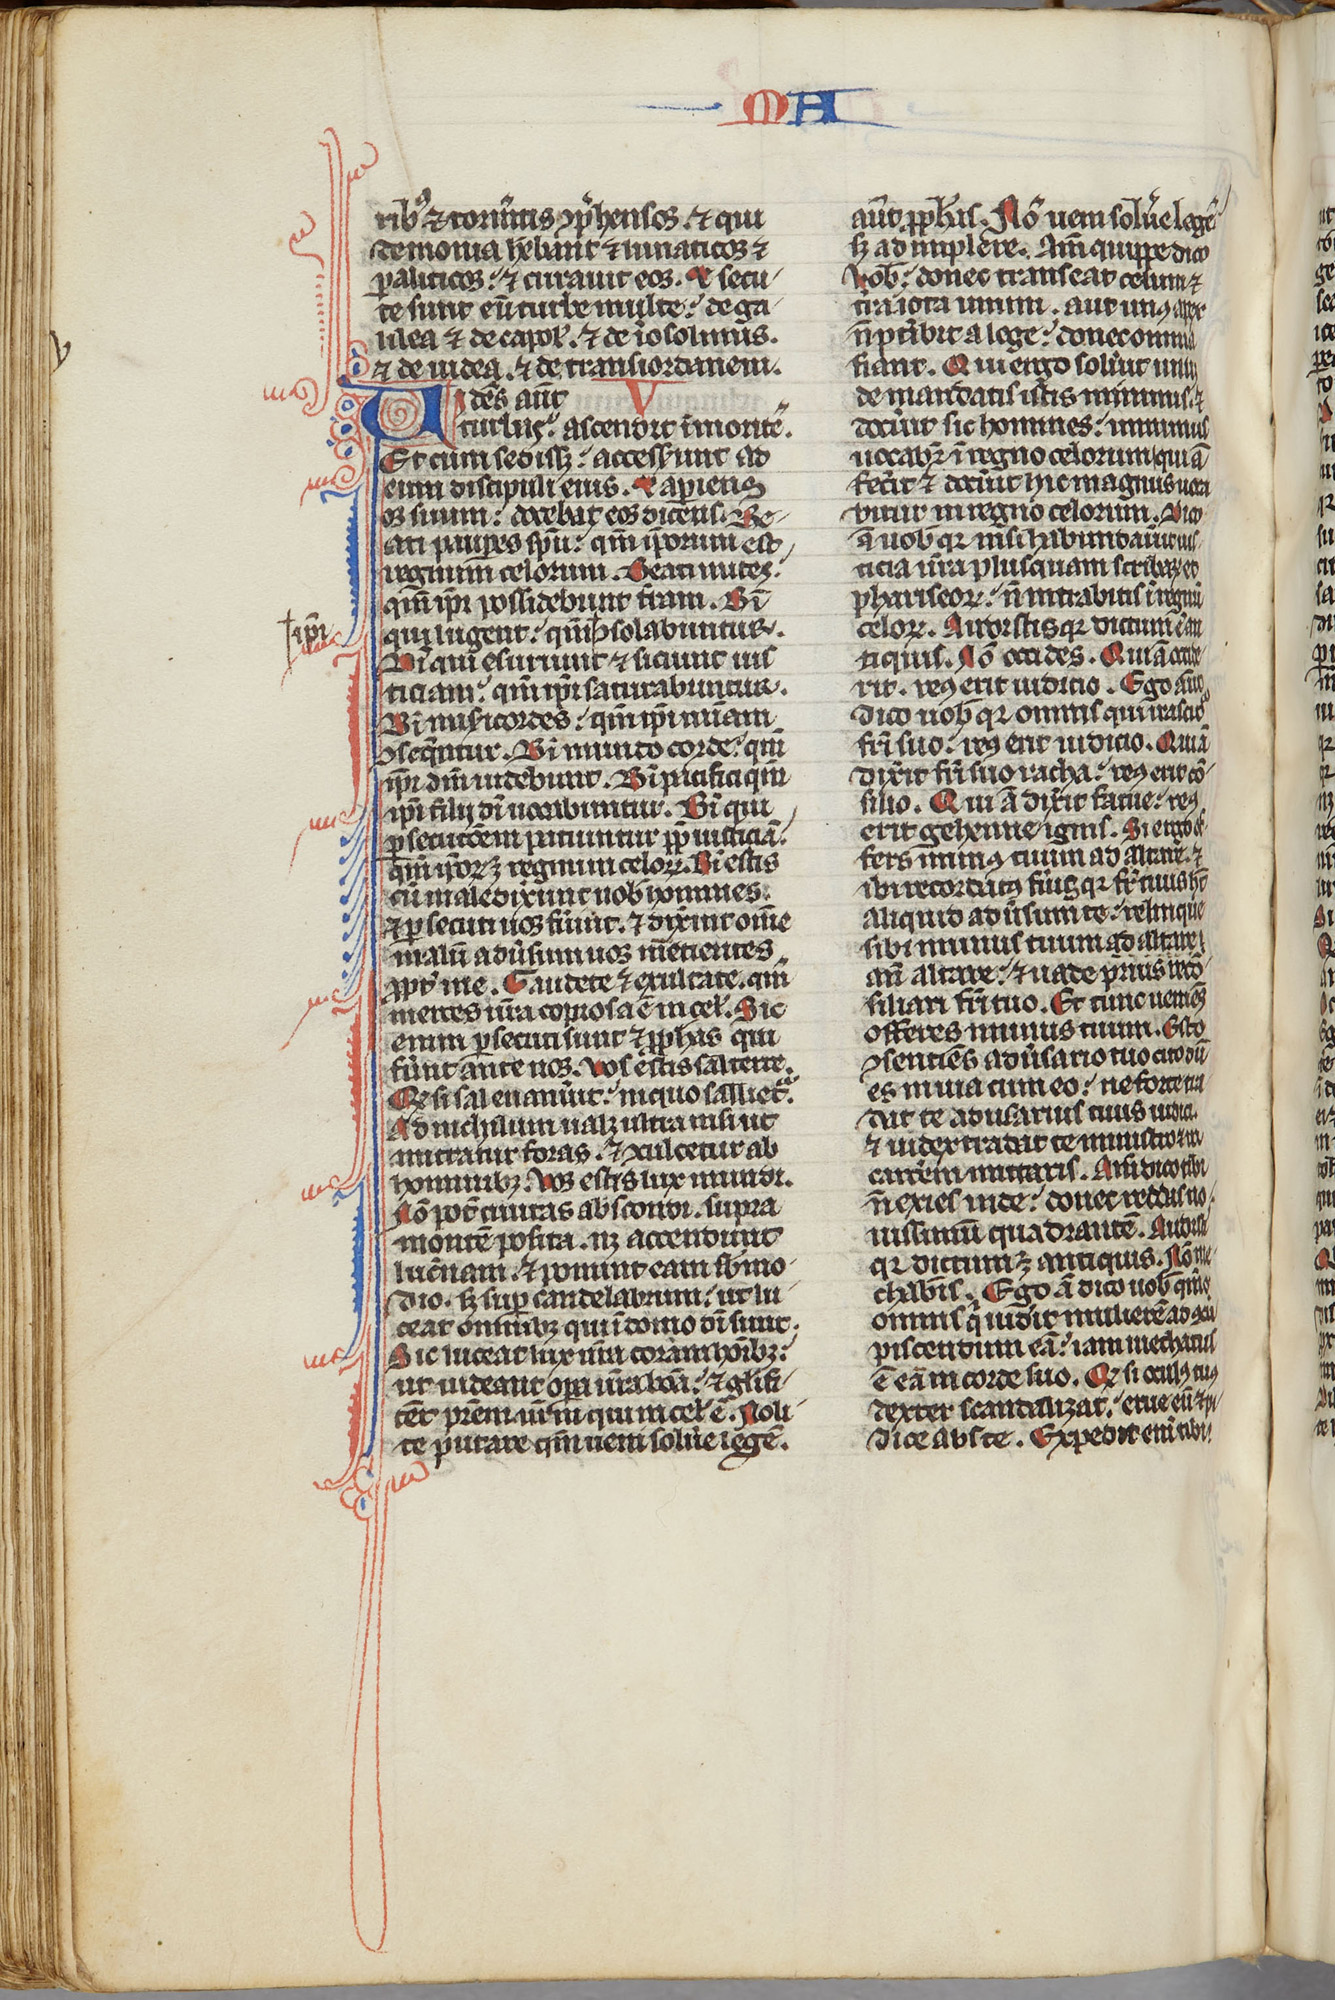 MA
ribꝰ ⁊ tormt̄tis ↄp̄hensos. ⁊ qui
demonia hēbant ⁊ lunaticos ⁊
paliticos: ⁊ curauit eos. Et secu
te sunt eū turbe multe: de ga
lilea ⁊ decapol̓. ⁊ de iosolimis.
⁊ de iudea. ⁊ de transiordanem.
V
Uidēs aūt
turbas: ascendit ī montē.
Et cum sedissꝫ: accessunt ad
eum discipuli eius. Et apiens
os suum: docebat eos dicens. Be
ati paupes spū: qm̄ ipsorum est
regnum celorum. Beati mites:
qm̄ ip̄i possidebunt t̄ram. Bī
qui lugent: qm̄ ↄsolabuntur.
†ip̄i
Bī qui esuriunt ⁊ siciunt ius
ticiam: qm̄ ip̄i saturabuntur.
Bī misicordes: qm̄ ip̄i mīam
ↄseq̄ntur. Bī mundo corde: qm̄
ip̄i dm̄ uidebunt. Bī pacifici qm̄
ip̄i filij dī uocabuntur. Bī qui
ꝑsecutōem patiuntur ꝓp̄ iusticiā:
qm̄ ip̄oꝝ ē regnum celoꝝ. Bī estis
cū maledixint uob̄ homines:
⁊ ꝑsecuti uos fūint. ⁊ dixint om̄e
malū adūsum uos mētientes
ꝓpt̓ me. Gaudete ⁊ exultate. qm̄
merces ur̄a copiosa ē in cel̓. Sic
enim ꝑsecuti sunt ⁊ ꝓphas qui
fūnt ante uos. Vos estis sal terre.
Qꝫ si sal euanūit: in quo salliet̓.
Ad nichilum ualꝫ ultra nisi ut
mittatur foras. ⁊ ↄculcetur ab
hominibꝫ. Vos estis lux mundi.
Nō pot̄ ciuitas abscondi. supra
montē posita. nꝫ accendunt
luc̄nam. ⁊ ponunt eam sb̄ mo
dio. sꝫ sup candelabrum: ut lu
ceat omībꝫ qui ī domo dī sunt.
Sic luceat lux ur̄a coram hoībꝫ:
ut uideant oꝑa ur̄a bōa: ⁊ glifi
cēt prēm ur̄m qui in cel̓ ē. Noli
te putare qm̄ ueni solūe legē.
aūt ꝓphās. Nō ueni solūe legē
sꝫ adimplere. Am̄ quippe dico
uob̄: donec transeat celum ⁊
t̄ra iota unum. aut unꝰ apex
n̄ pt̄ibit a lege: donec omnia
fiant. Qui ergo solūit unū
de mandatis istis minimis. ⁊
docūit sic homines: minimus
uocabit̓ ī regno celorum. qui ā
fec̄it ⁊ docūit hic magnus uoca
bitur in regno celorum. Dico
ā uob̄ qꝛ nisi habundaūit ius
ticia ur̄a plusquam scribaꝝ et
phariseoꝝ: n̄ intrabitis ī regnū
celoꝝ. Audistis qꝛ dictum ē an
tiquis. Nō occides. Qui ā occide
rit. reꝰ erit iudicio. Ego aūt
dico uob̄ qꝛ omnis qui irascit̓
fr̄i suo: reꝰ erit iudicio. Qui ā
dix̄it fr̄i suo racha: reꝰ erit cō
silio. Qui ā dix̄it fatue: reꝰ
erit gehenne ignis. Si ergo of
fers munꝰ tuum ad altare. ⁊
ibi recordatꝰ fūis qꝛ fr̄ tuus hꝫ
aliquid adūsum te: relinque
sibi munus tuum ad altare
an̄ altare: ⁊ uade prius recō
siliari fr̄i tuo. Et tunc ueniēs
offeres munus tuum. Esto
ↄsentiēs adūsario tuo cito dū
es in uia cum eo: ne forte tra
dat te adūsarius tuus iudici.
⁊ iudex tradat te ministro ⁊ in
carc̄em mittaris. Am̄ dico tibi
n̄ exies inde: donec reddas no
uissimū quadrantē. Audistis
qꝛ dictum ē antiquis. Nō me
chab̄is. Ego ā dico uob̄ qm̄
omnis q̄ uid̄it mulierē ad ↄcu
piscendum eā: iam mechatus
ē eā in corde suo. Qꝫ si oculꝰ tuꝰ
dexter scandalizat. erue eū ⁊ pi
dice abs te. Expedit enī tibi